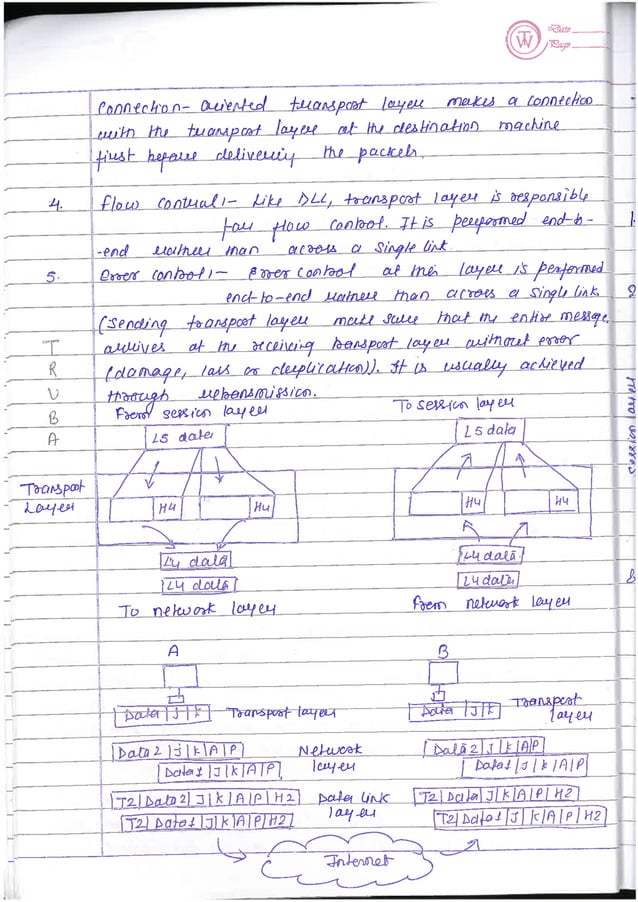 TW
Date
Page
Connection-oriented transport layer makes a connection
with the transport layer at the destination machine
first before delivering the packets.
4. Flow control:- Like DLL, transport layer is responsible
for flow control. It is performed end-to-
-end rather than across a single link.
5. Error control:- Error control at this layer is performed
end-to-end rather than across a single link.
(Sending transport layer make sure that the entire message
arrives at the receiving transport layer without error
(damage, loss or duplication)). It is usually achieved
through retransmission.
T
R
U
B
A
From session layer
To session layer
L5 data
L5 data
Transport
Layer
H4
H4
H4
H4
L4 data
L4 data
L4 data
L4 data
To network layer
From network layer
A
B
Data|J|K
Transport layer
Data|J|K
Transport
layer
Data2|J|K|A|P
Data1|J|K|A|P
Network
layer
Data2|J|K|A|P
Data1|J|K|A|P
T2|Data2|J|K|A|P|H2
T2|Data1|J|K|A|P|H2
Data link
layer
T2|Data|J|K|A|P|H2
T2|Data1|J|K|A|P|H2
Internet
Session layer